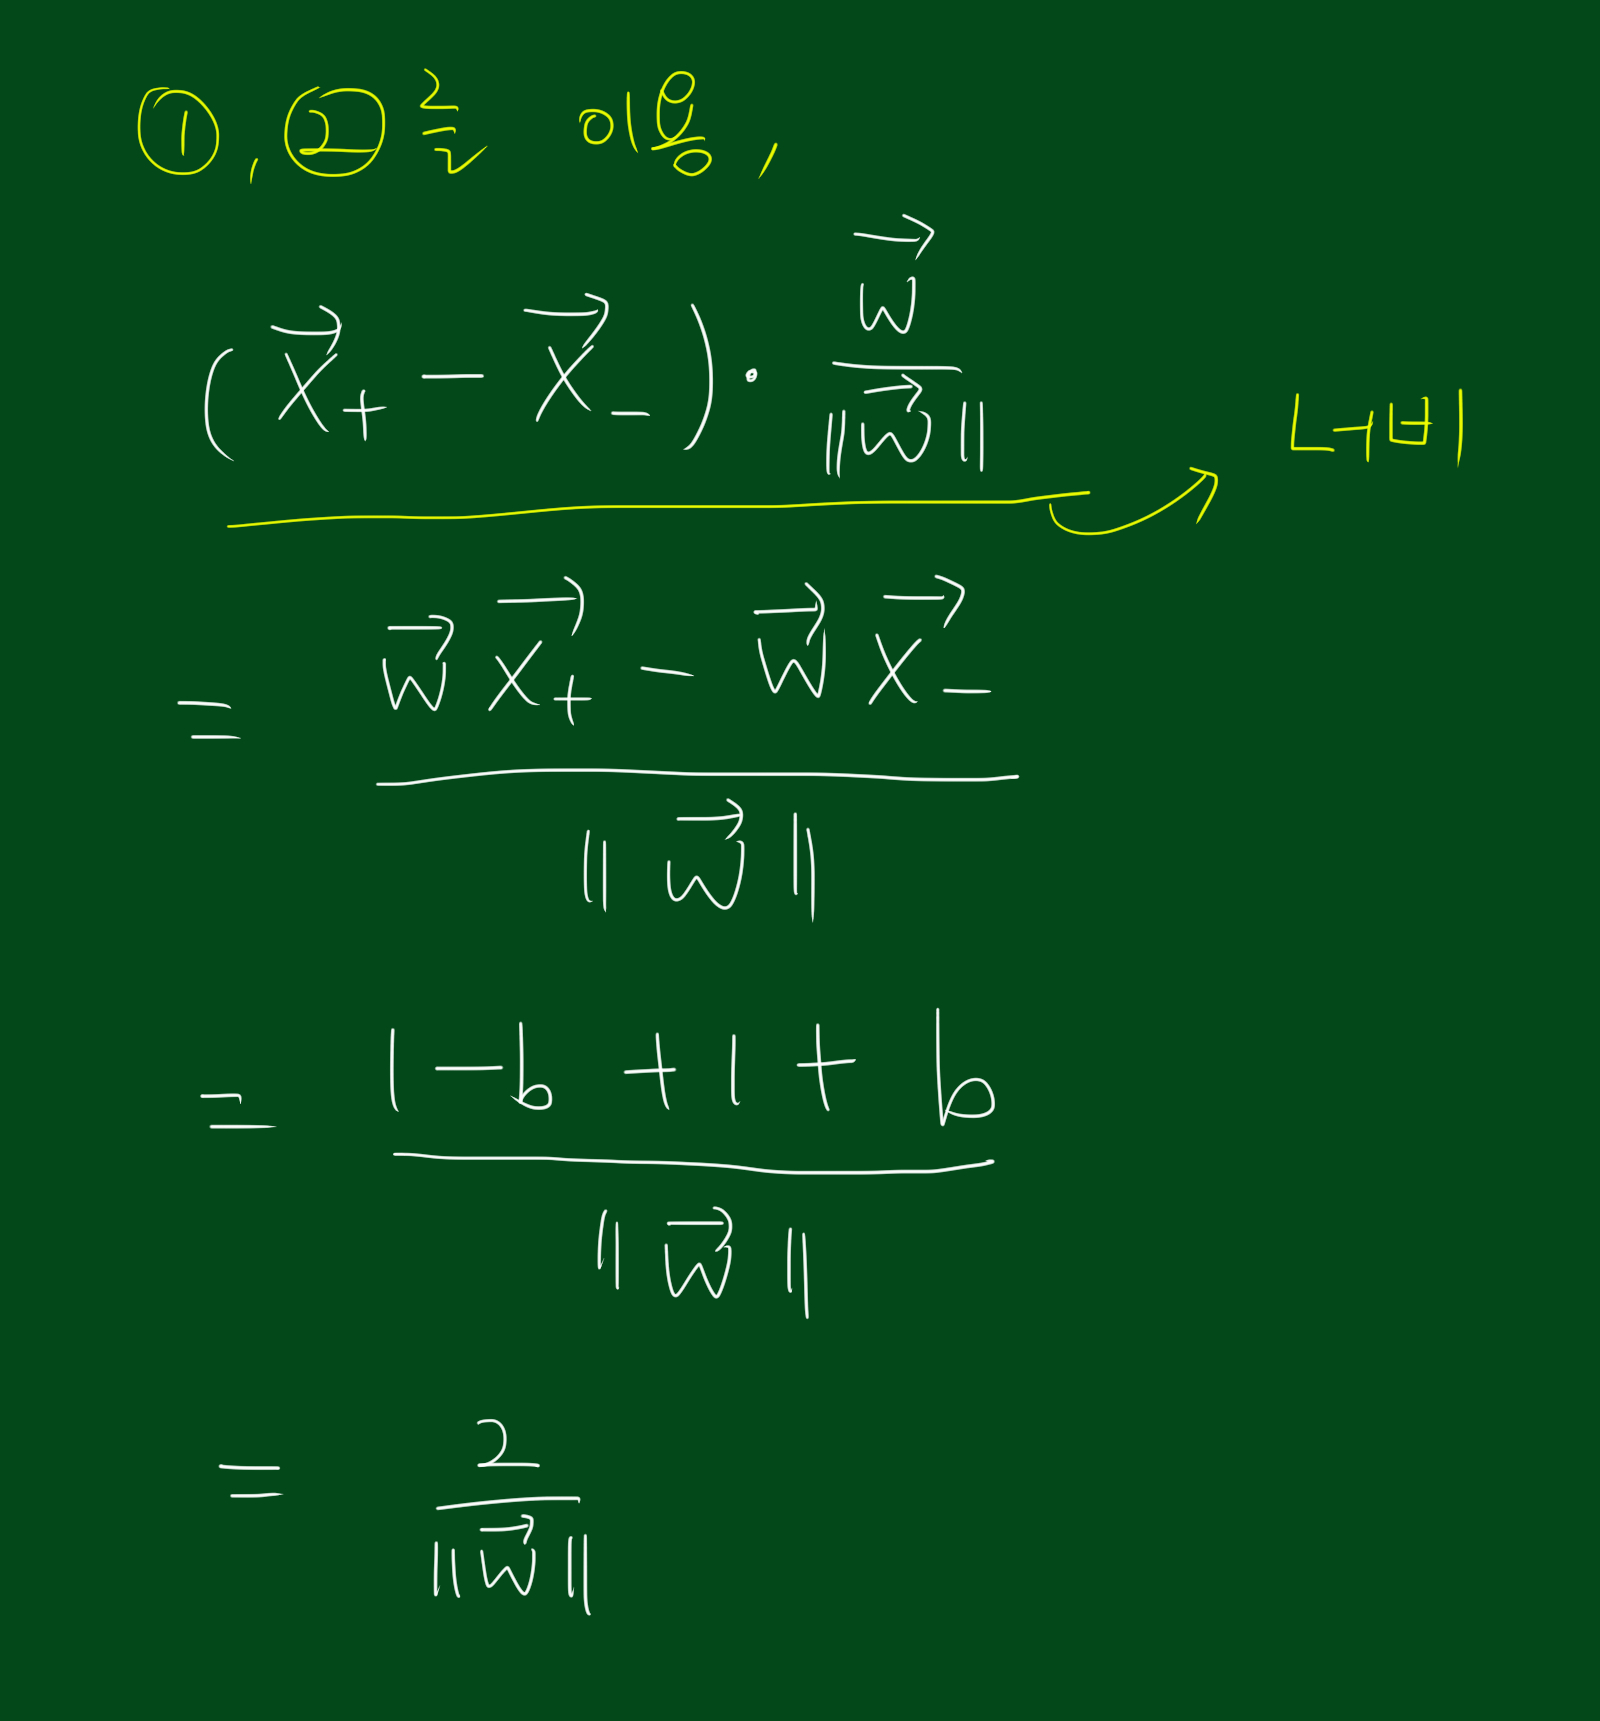 ①, ② 를 이용,
(x⃗₊ − x⃗₋) · w⃗ / ||w⃗|| 너비
= (w⃗ x⃗₊ − w⃗ x⃗₋) / ||w⃗||
= (1 − b + 1 + b) / ||w⃗||
= 2 / ||w⃗||